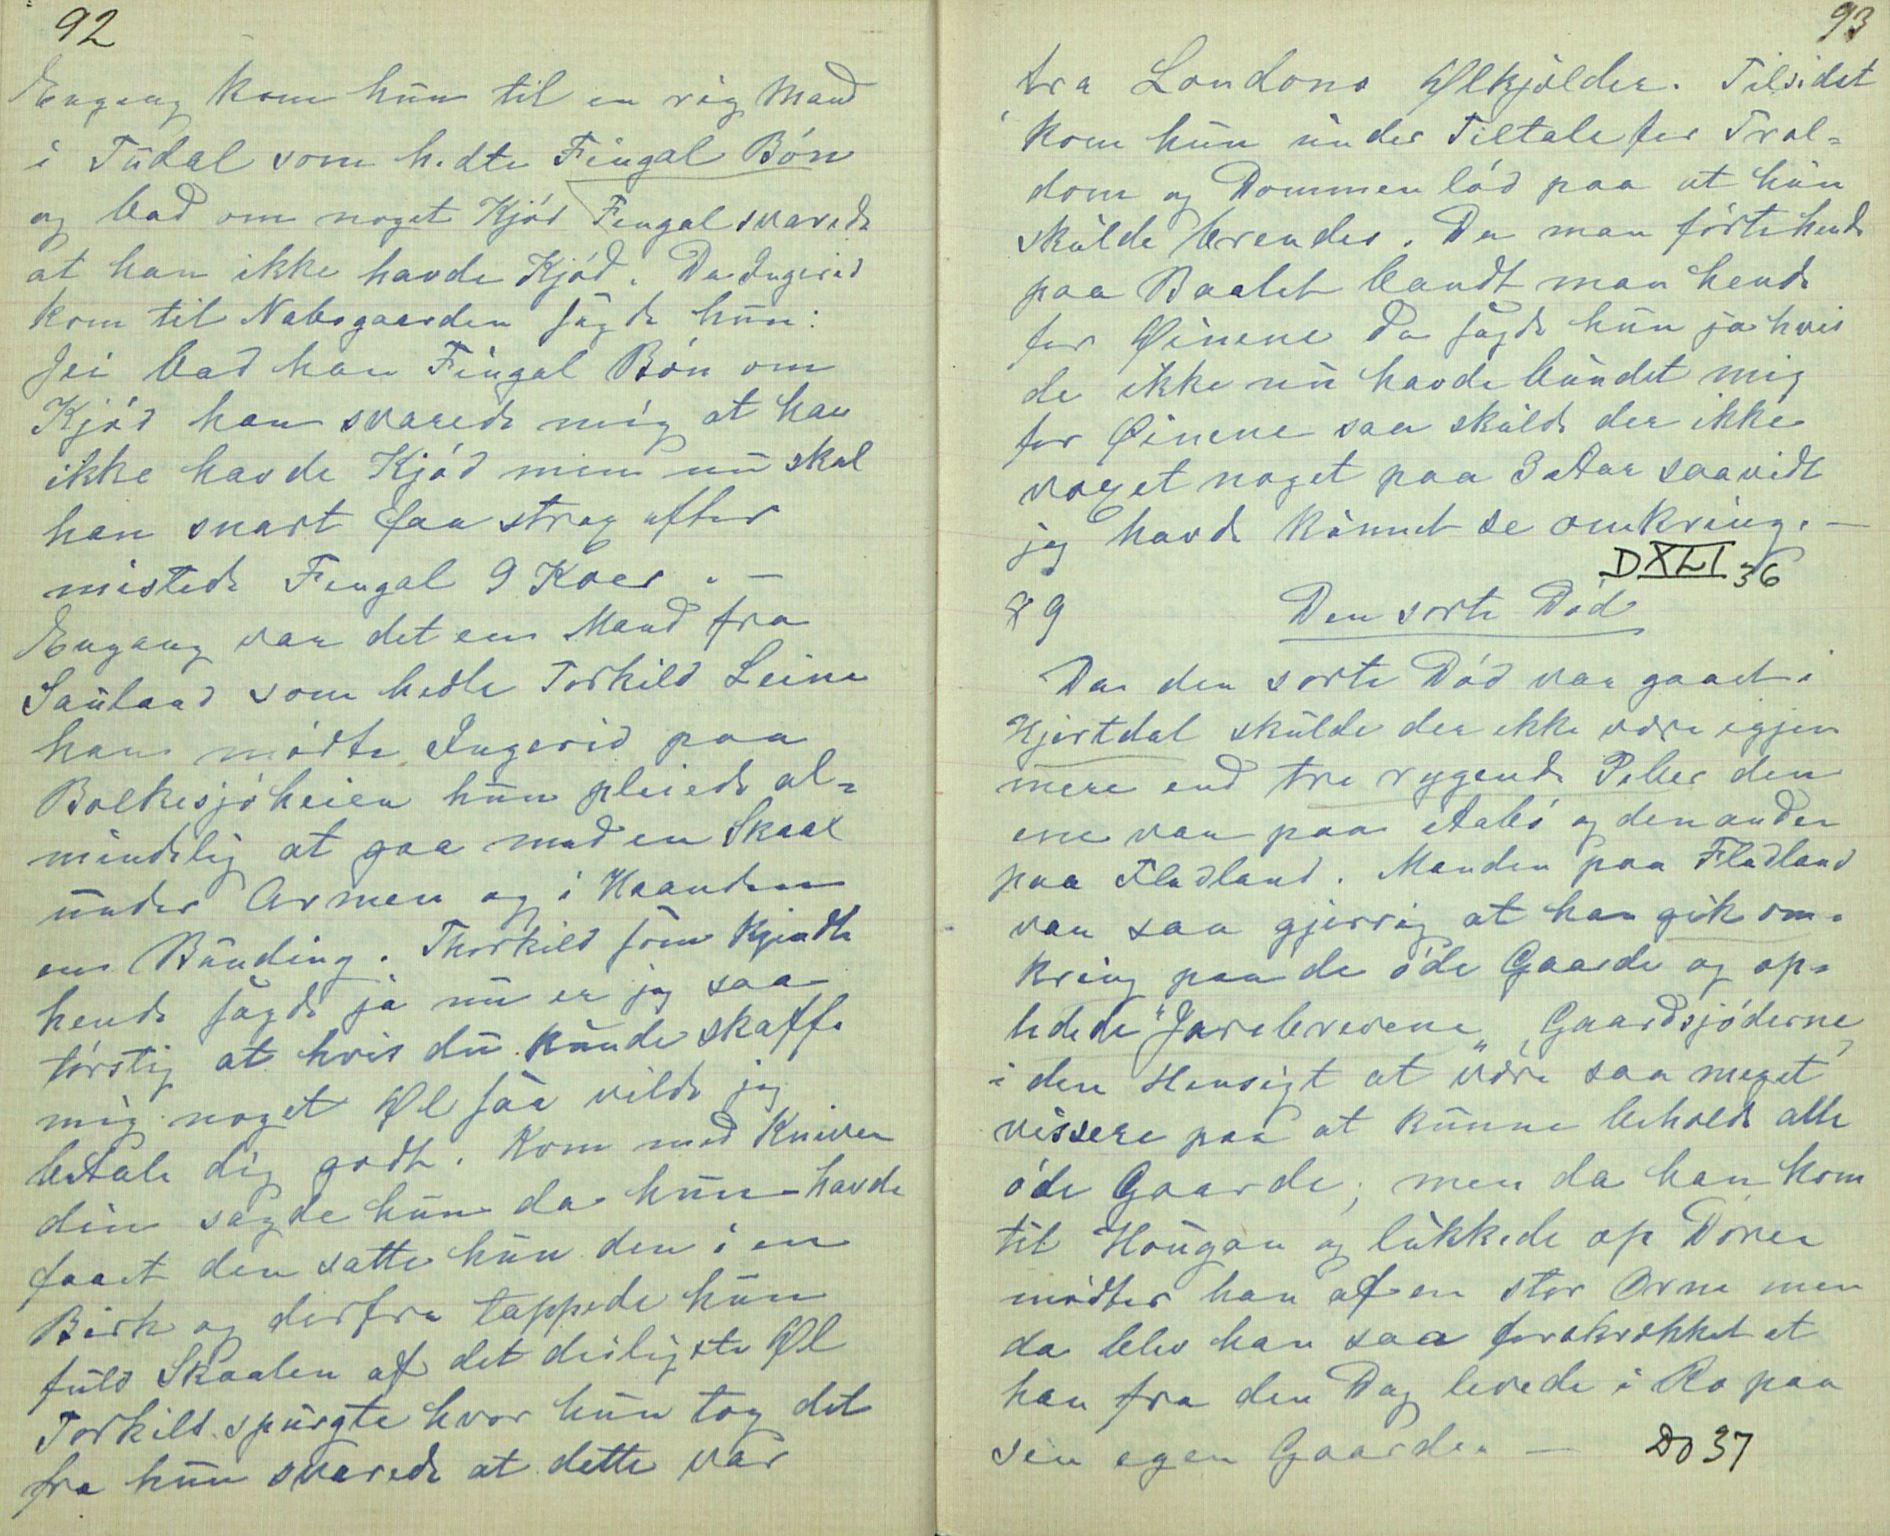 92
Engang kom hun til en rig Mand
i Tudal som hedte Fingal Bøn
og bad om noget Kjød Fengal svarede
at han ikke havde Kjød. Da Ingerid
kom til Nabogaarden sagde hun:
Jei bad han Fingal Bøn om
Kjød han svarede mig at han
ikke havde Kjød men nu skal
han snart faa strax efter
mistede Fengal 9 Koer. —
Engang var det en Mand fra
Sauland som hedte Torkild Leine
han mødte Ingerid paa
Bolkesjøheien hun pleiede al-
mindelig at gaa med en Skaal
under Armen og i Haanden
en Bunding. Thorkild som kjendte
hende sagde ja nu er jeg saa
tørstig at hvis du kunde skaffe
mig noget Øl saa vilde jeg
betale dig godt. Kom med Kniven
din sagde hun da hun havde
faaet den satte hun den i en
Birk og derfra tappede hun
fuld Skaalen af det deiligste Øl
Torkild spurgte hvor hun tog det
fra hun svarede at dette var
93
fra Londons Ølkjelder. Tilsidst
kom hun under Tiltale for Trol=
dom og Dommen lød paa at hun
skulde brendes. Da man førte hende
paa Baalet bandt man hende
for Øinene da sagde hun ja hvis
de ikke nu havde bundet mig
for Øinene saa skulde der ikke
voxet noget paa 3 Aar saavidt
jeg havde kunnet se omkring. —
DXLI 36
89 Den sorte Død
Da den sorte Død var gaaet i
Hjertdal skulde der ikke være igjen
mere end tre rygende Peber den
ene var paa Aabø og den anden
paa Fladland. Manden paa Fladland
var saa gjerrig at han gik om-
kring paa de øde Gaarde og op-
ledede "Jarebrevene" Gaardsjøderne,
i den Hensigt at være saa meget
vissere paa at kunne beholde alle
øde Gaarde; men da han kom
til Hougan og lukkede op Døren
mødtes han af en stor Orne men
da blev han saa forskrækket at
han fra den Dag levede i Ro paa
sin egen Gaarden —
Do 37